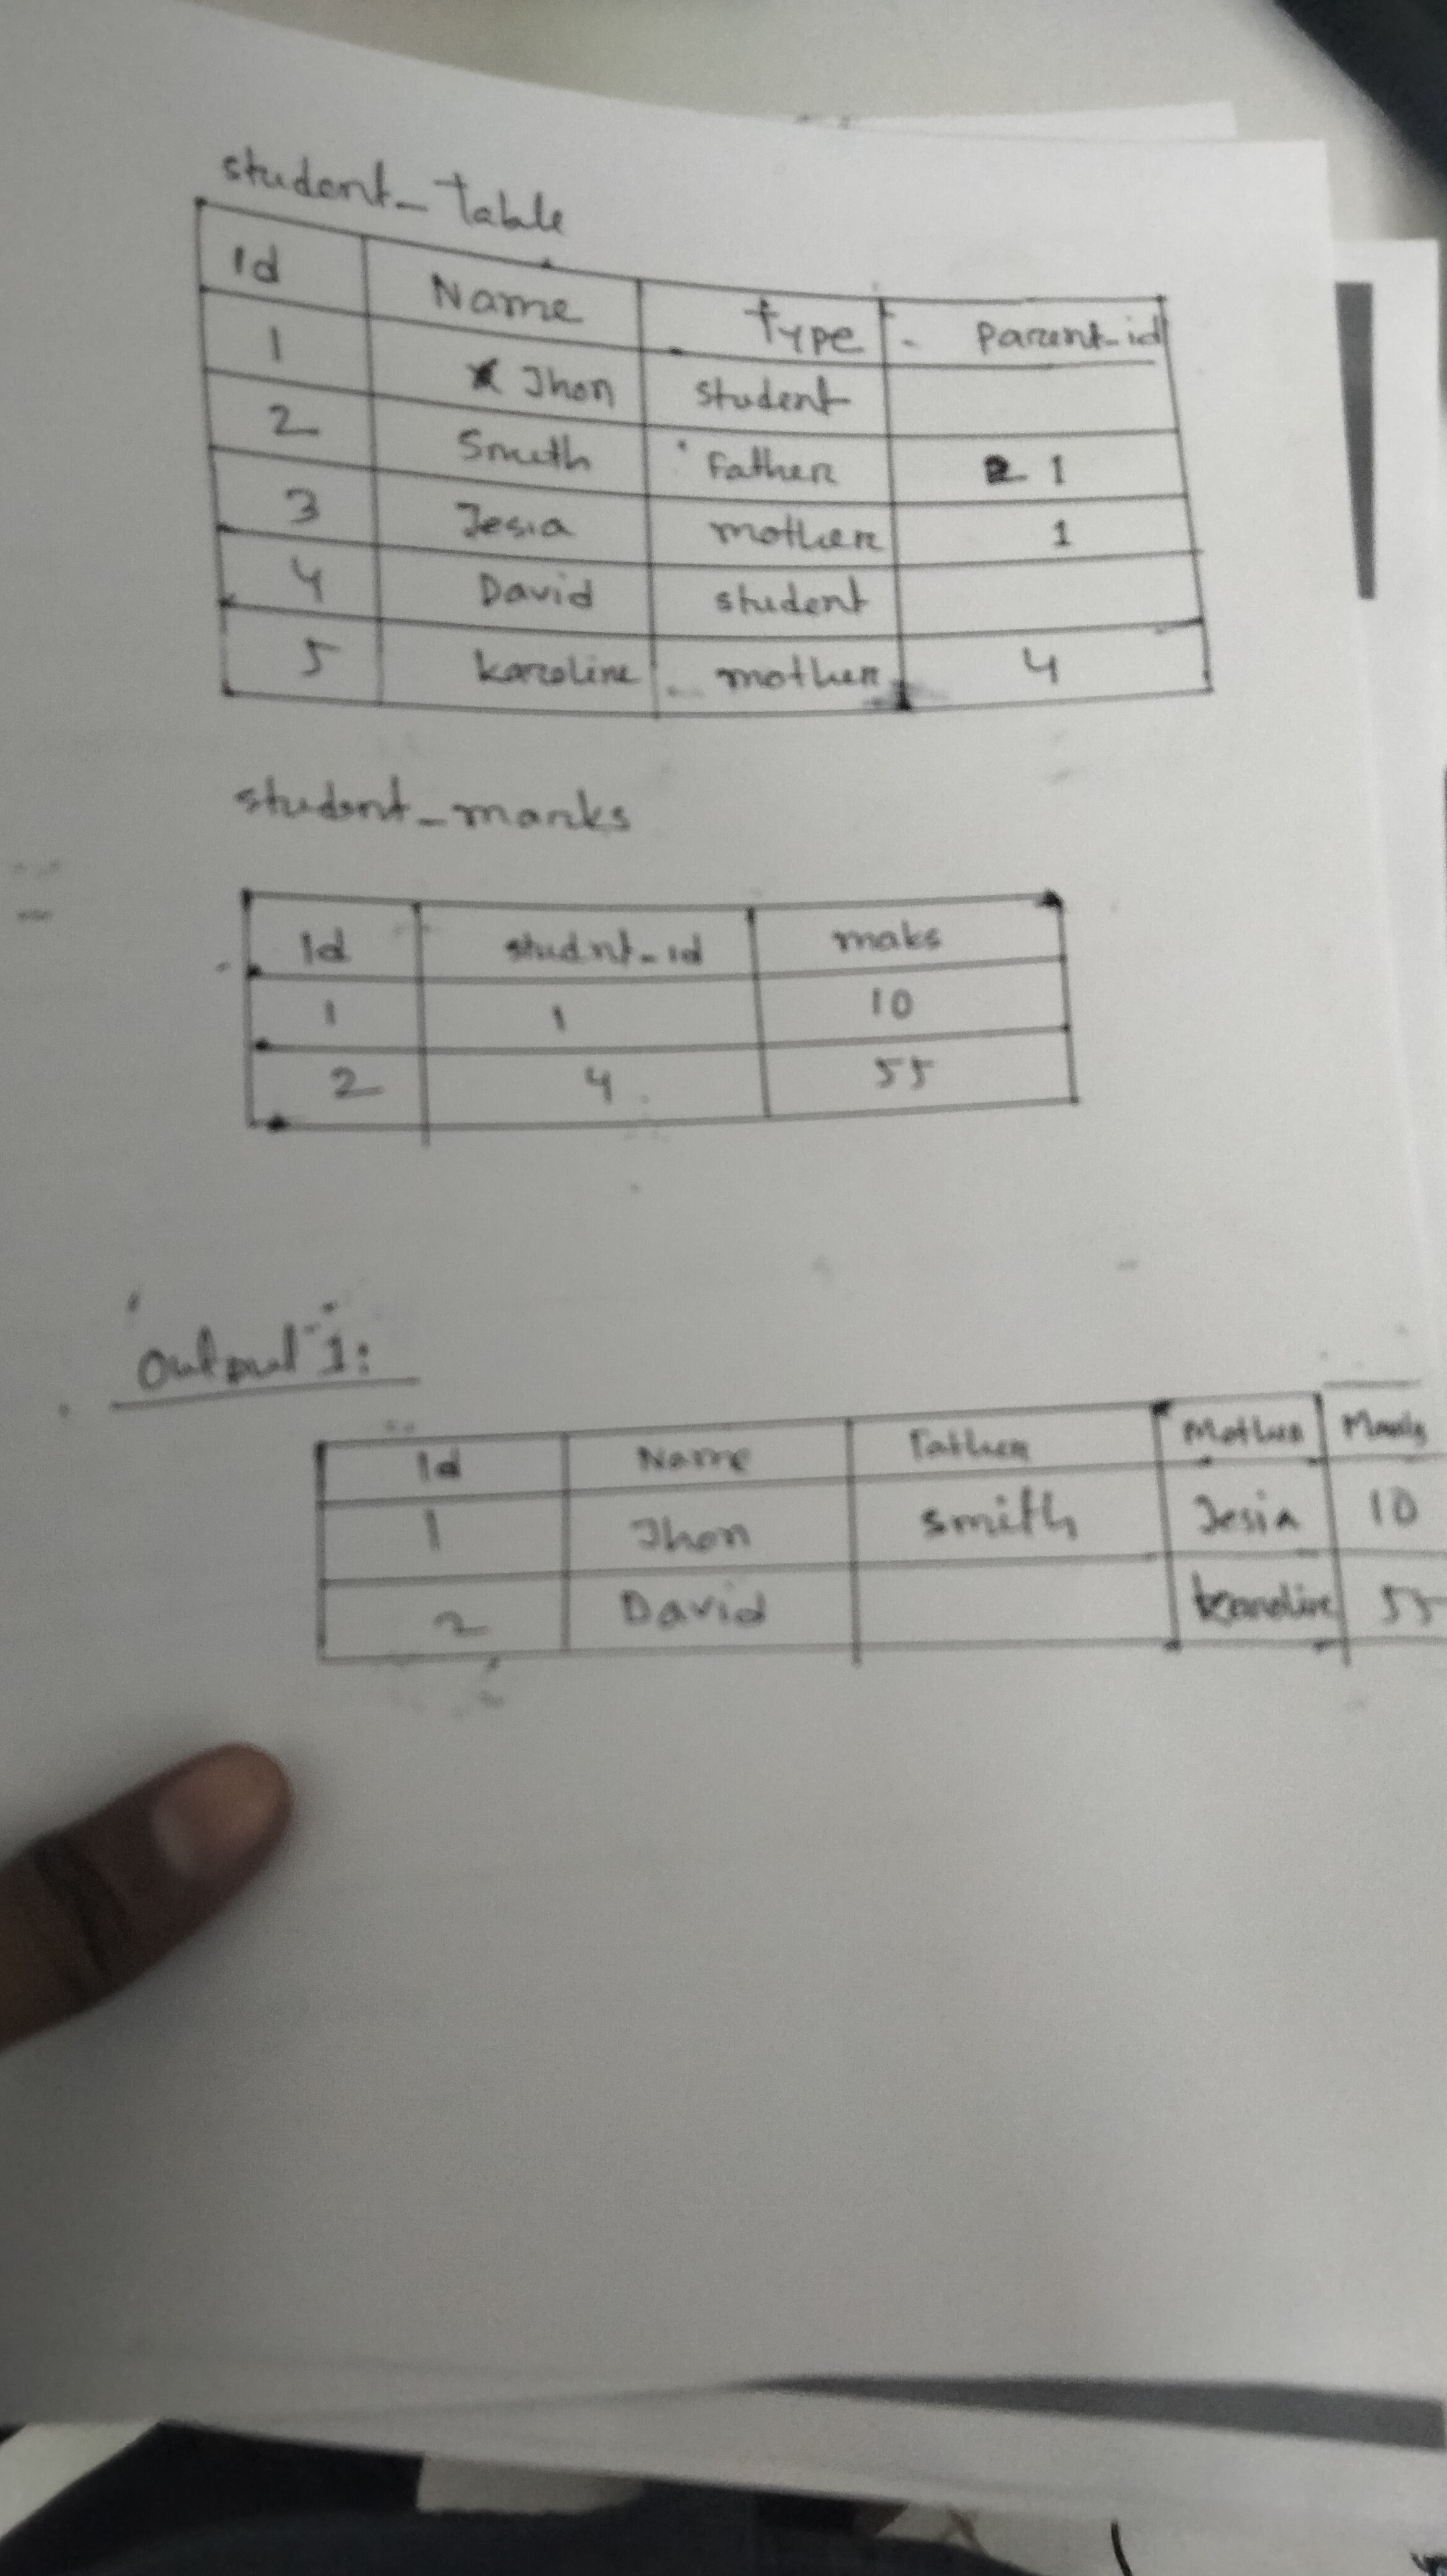 student_Table
Id Name Type Parent_id
1 Jhon student
2 Smith Father 1
3 Jesia mother 1
4 David student
5 karoline mother 4
student_marks
Id studnt_id maks
1 1 10
2 4 55
Output 1:
Id Name Father Mother Marks
1 Jhon smith Jesia 10
2 David karoline 55